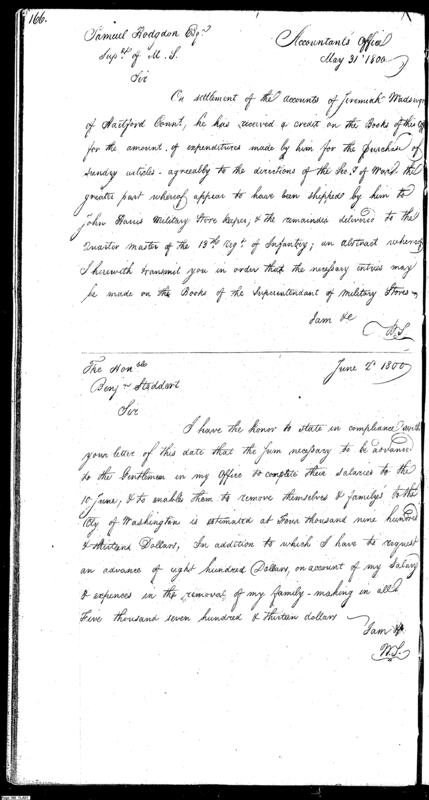 166.
Samuel Hodgdon Esqr.
Accountants Office
Supt. of M. S.
May 31st 1800
Sir
On settlement of the accounts of Jeremiah Wadsworth
of Hartford Connt, he has received a credit on the Books of this
for the amount of expenditures made by him for the purchase of
sundry articles - agreeably to the directions of the Secy. of War. the
greater part whereof appear to have been shipped by him to
John Harris Military Store keeper; & the remainder delivered to the
Quarter master of the 13th Regt. of Infantry; an abstract whereof
I herewith transmit you in order that the necessary entries may
be made on the Books of the Superintendant of Military Stores
I am &c
W. S.
The Honble
June 2d 1800
Benjn Stoddert
Sir
I have the honor to state in compliance with
your letter of this date that the Sum necessary to be advanced
to the Gentlemen in my Office to complete their salaries to the
10 June, & to enable them to remove themselves & family's to the
City of Washington is estimated at Four thousand nine hundred
& thirteen Dollars, In addition to which I have to request
an advance of eight hundred Dollars, on account of my Salary
& expences in the removal of my family - making in all
Five thousand seven hundred & thirteen dollars
I am &c
W. S.